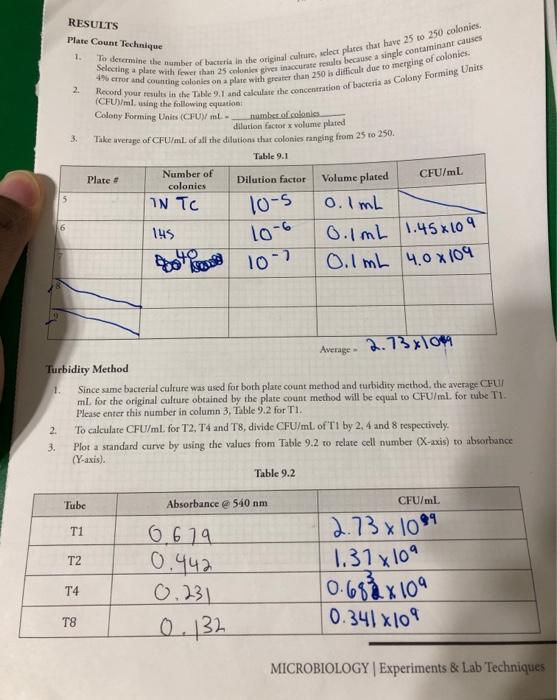 RESULTS
Plate Count Technique
1. To determine the number of bacteria in the original culture, select plates that have 25 to 250 colonies.
Selecting a plate with fewer than 25 colonies gives inaccurate results because a single contaminant causes
4% error and counting colonies on a plate with greater than 250 is difficult due to merging of colonies.
2. Record your results in the Table 9.1 and calculate the concentration of bacteria as Colony Forming Units
(CFU)/mL using the following equation:
Colony Forming Units (CFU)/ mL = number of colonies
dilution factor x volume plated
3. Take average of CFU/mL of all the dilutions that colonies ranging from 25 to 250.
Table 9.1
Plate # Number of colonies Dilution factor Volume plated CFU/mL
5 TNTC 10-5 0.1mL
6 145 10-6 0.1mL 1.45x10 9
7 40 10-7 0.1mL 4.0 x 109
8
9
Average = 2.73x109
Turbidity Method
1. Since same bacterial culture was used for both plate count method and turbidity method, the average CFU/
mL for the original culture obtained by the plate count method will be equal to CFU/mL for tube T1.
Please enter this number in column 3, Table 9.2 for T1.
2. To calculate CFU/mL for T2, T4 and T8, divide CFU/mL of T1 by 2, 4 and 8 respectively.
3. Plot a standard curve by using the values from Table 9.2 to relate cell number (X-axis) to absorbance
(Y-axis).
Table 9.2
Tube Absorbance @ 540 nm CFU/mL
T1 0.679 2.73 x 109
T2 0.442 1.37 x 109
T4 0.231 0.683 x 109
T8 0.132 0.341 x 109
MICROBIOLOGY | Experiments & Lab Techniques